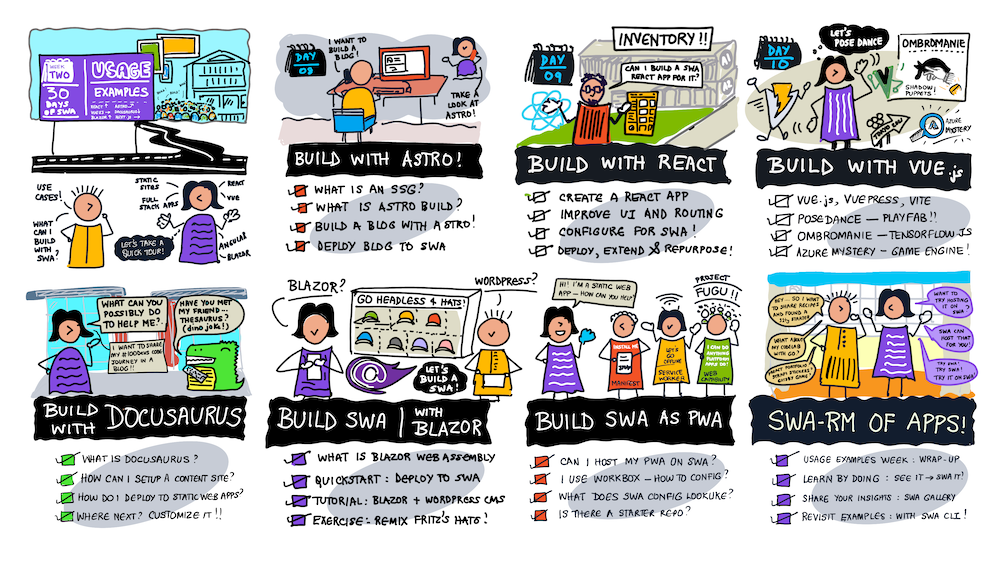 WEEK
TWO
30
DAYS
OF SWA
USAGE
EXAMPLES
USE
CASES!
WHAT
CAN I
BUILD
WITH
SWA?
STATIC
SITES
FULL
STACK APPS
REACT
VUE
ANGULAR
BLAZOR
LET'S TAKE A
QUICK TOUR!
I WANT TO
BUILD A
BLOG!
DAY
TAKE A
LOOK AT
ASTRO!
BUILD WITH ASTRO!
WHAT IS AN SSG?
WHAT IS ASTRO BUILD?
BUILD A BLOG WITH ASTRO!
DEPLOY BLOG TO SWA
INVENTORY!!
DAY
09
CAN I BUILD A SWA
REACT APP FOR IT?
BUILD WITH REACT
CREATE A REACT APP
IMPROVE UI AND ROUTING
CONFIGURE FOR SWA!
DEPLOY, EXTEND & REPURPOSE!
DAY
10
LET'S
POSE DANCE
OMBROMANIE
SHADOW
PUPPETS
AZURE
MYSTERY
BUILD WITH VUE.js
VUE.js, VUEPRESS, VITE
POSEDANCE — PLAYFAB!!
OMBROMANIE — TENSORFLOW JS
AZURE MYSTERY — GAME ENGINE!
WHAT CAN YOU
POSSIBLY DO
TO HELP ME?
I WANT TO SHARE
MY #100DAYS CODE
JOURNEY IN A
BLOG!!
HAVE YOU MET
MY FRIEND...
THESAURUS?
(dino joke!)
BUILD
WITH DOCUSAURUS
WHAT IS DOCUSAURUS?
HOW CAN I SETUP A CONTENT SITE?
HOW DO I DEPLOY TO STATIC WEB APPS?
WHERE NEXT? CUSTOMIZE IT!!
BLAZOR?
WORDPRESS?
GO HEADLESS 4 HATS!
LET'S
BUILD A
SWA!
BUILD SWA | WITH
BLAZOR
WHAT IS BLAZOR WEB ASSEMBLY
QUICKSTART: DEPLOY TO SWA
TUTORIAL: BLAZOR + WORDPRESS CMS
EXERCISE: REMIX FRITZ'S HATS!
HI! I'M A STATIC WEB
APP — HOW CAN YOU HELP?
PROJECT
FUGU!!
INSTALL ME
MANIFEST
LET'S
GO
OFFLINE
SERVICE
WORKER
I CAN DO
ANYTHING
PLATFORM
APPS DO!
WEB
CAPABILITY
BUILD SWA AS PWA
CAN I HOST MY PWA ON SWA?
I USE WORKBOX — HOW TO CONFIG?
WHAT DOES SWA CONFIG LOOKLIKE?
IS THERE A STARTER REPO?
HEY... SO I WANT
TO SHARE RECIPES
AND FOUND A
WHAT ABOUT
MY CODELAB
WITH GO?
WANT TO
TRY HOSTING
IT ON
SWA?
SWA CAN
HOST THAT
FOR YOU!
TRY SWA!
TRY IT ON SWA!
SWA-RM OF APPS!
USAGE EXAMPLES WEEK: WRAP-UP
LEARN BY DOING: SEE IT → SWA IT!
SHARE YOUR INSIGHTS: SWA GALLERY
REVISIT EXAMPLES: WITH SWA CLI!